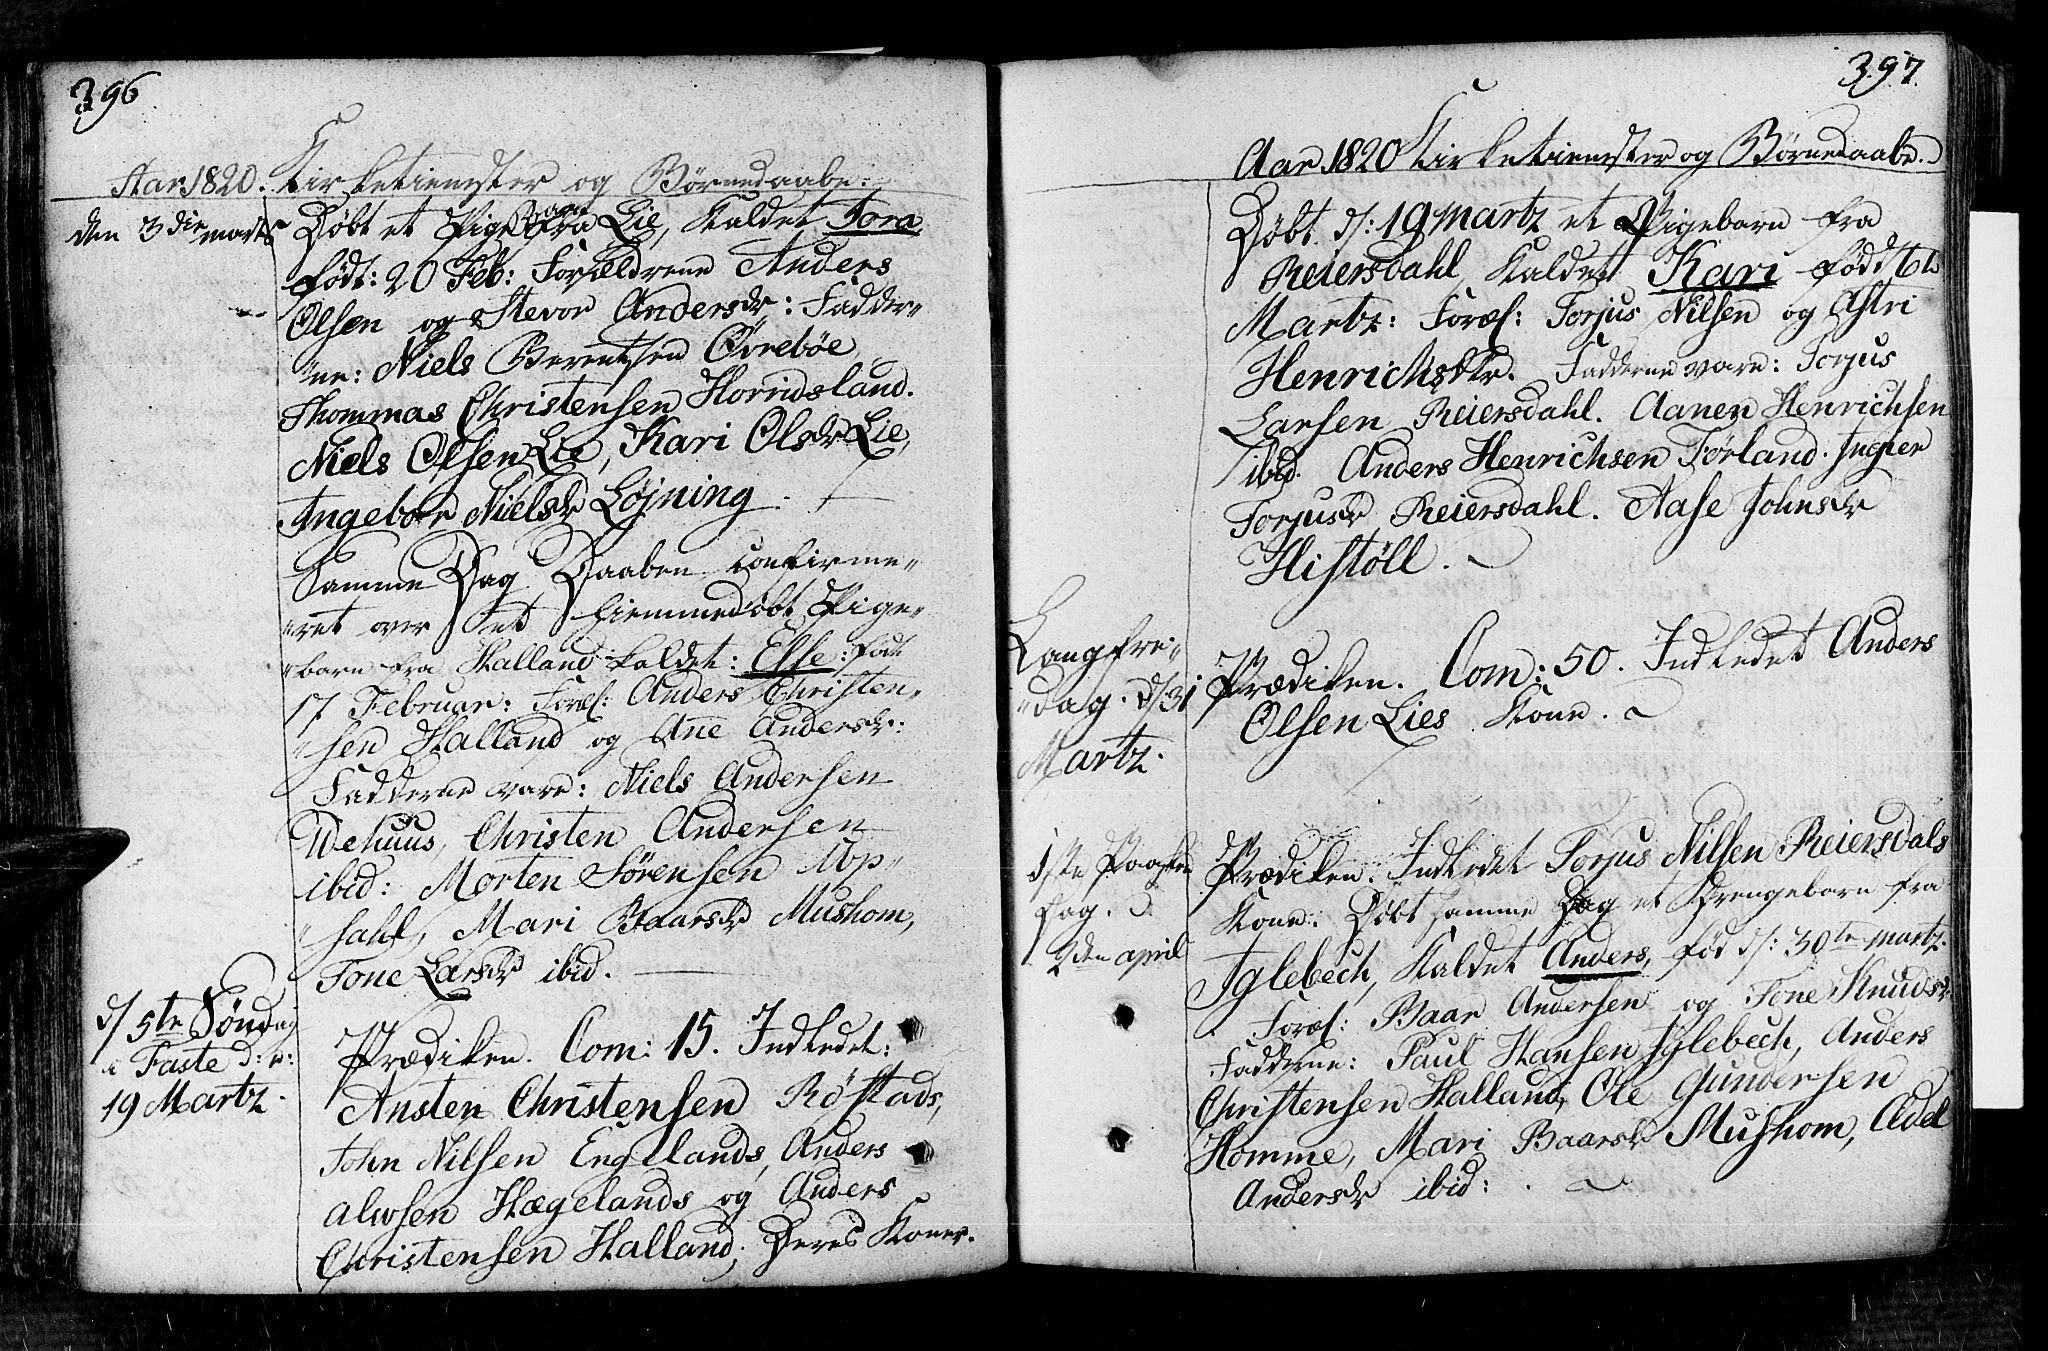 396
Aar 1820. Kirketienester og Børnedaabe:
den 3die martz
Døbt et Pige Barn fra Lie, kaldet Tora
født: 20 Feb: Forældrene Anders
Olsen og Stevor Andersdr: Fadder„
„ne: Niels Berentsen Øvrebøe
Thommas Christensen Horridsland.
Niels Olsen Lie, Kari Olsdr Lie,
Ingebor Nielsdr Løjning.
Samme Dag Daaben confirme„
„ret over et hiemmedøbt Pige„
„barn fra Halland kaldet: Else: født
17 Februar: Foræl: Anders Christen„
„sen Halland og Ane Andersdr:
Fadderne vare: Niels Andersen
Wehuus, Christen Andersen
ibid: Morten Sørensen Op„
„sahl, Mari Baarsdr Mushom,
Tone Larsdr ibid.
d/ 5te Søndag
i Faste d: e:
19 Martz.
Prædiken. Com: 15. Indledet:
Ansten Christensen Røstads,
John Nilsen Englands, Anders
Alwsen Hægelands og Anders
Christensen Halland; Deres Koner.
397.
Aar 1820 Kirketienester og Børnedaabe.
Døbt d/: 19 Martz et Pigebarn fra
Reiersdahl, kaldet Kari født 6te
Martz: Foræl: Torjus Nilsen og Astri
Henrichsdr. Fadderne vare: Torjus
Larsen Reiersdahl. Aanen Henrichsen
ibid. Anders Henrichsen Førland. Ingier
Torjusdr Reiersdahl. Aase Johnsdr
Histøll.
Langfre„
„dag. d/31
Martz.
Prædiken. Com: 50. Indledet Anders
Olsen Lies Kone.
1ste Paaske
dag. d.
2den april
Prædiken. Indledet Torjus Nilsen Reiersdals
Kone. Døbt samme Dag et Drengebarn fra
Iglebech, kaldet Anders, fød d/: 30te martz.
Foræl: Baar Andersen og Tone Knudsdr
Fadderne: Paul Hansen Iglebech, Anders
Christensen Halland, Ole Gundersen
Homme, Mari Baarsdr Mushom, Adel
Andersdr ibid: